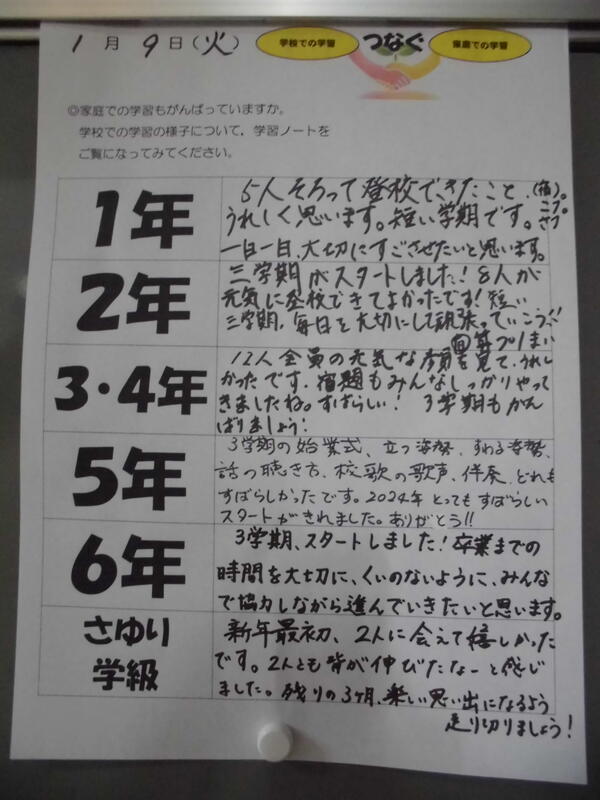 1月9日(火)
学校での学習
つなぐ
家庭での学習
◎家庭での学習もがんばっていますか。
学校での学習の様子について、学習ノートを
ご覧になってみてください。
1年
5人そろって登校できたこと、
うれしく思います。短い学期です。
一日一日、大切にすごさせたいと思います。
(宿)。
こプ。
さプ
2年
三学期がスタートしました!8人が
元気に登校できてよかったです!短い
三学期、毎日を大切にして頑張っていこう!!
3・4年
12人全員の元気な顔を見て、うれし
かったです。宿題もみんなしっかりやって
きましたね。すばらしい! 3学期もがん
ばりましょう!
5年
3学期の始業式、立つ姿勢、すわる姿勢、
話の聴き方、校歌の歌声、伴奏、どれも
すばらしかったです。2024年とってもすばらしい
スタートがきれました。ありがとう!!
6年
3学期、スタートしました!卒業までの
時間を大切に、くいのないように、みんな
で協力しながら進んでいきたいと思います。
さゆり
学級
新年最初、2人に会えて嬉しかった
です。2人とも背が伸びたなーと感じ
ました。残りの3ヶ月、楽しい思い出になるよう
走り切りましょう!